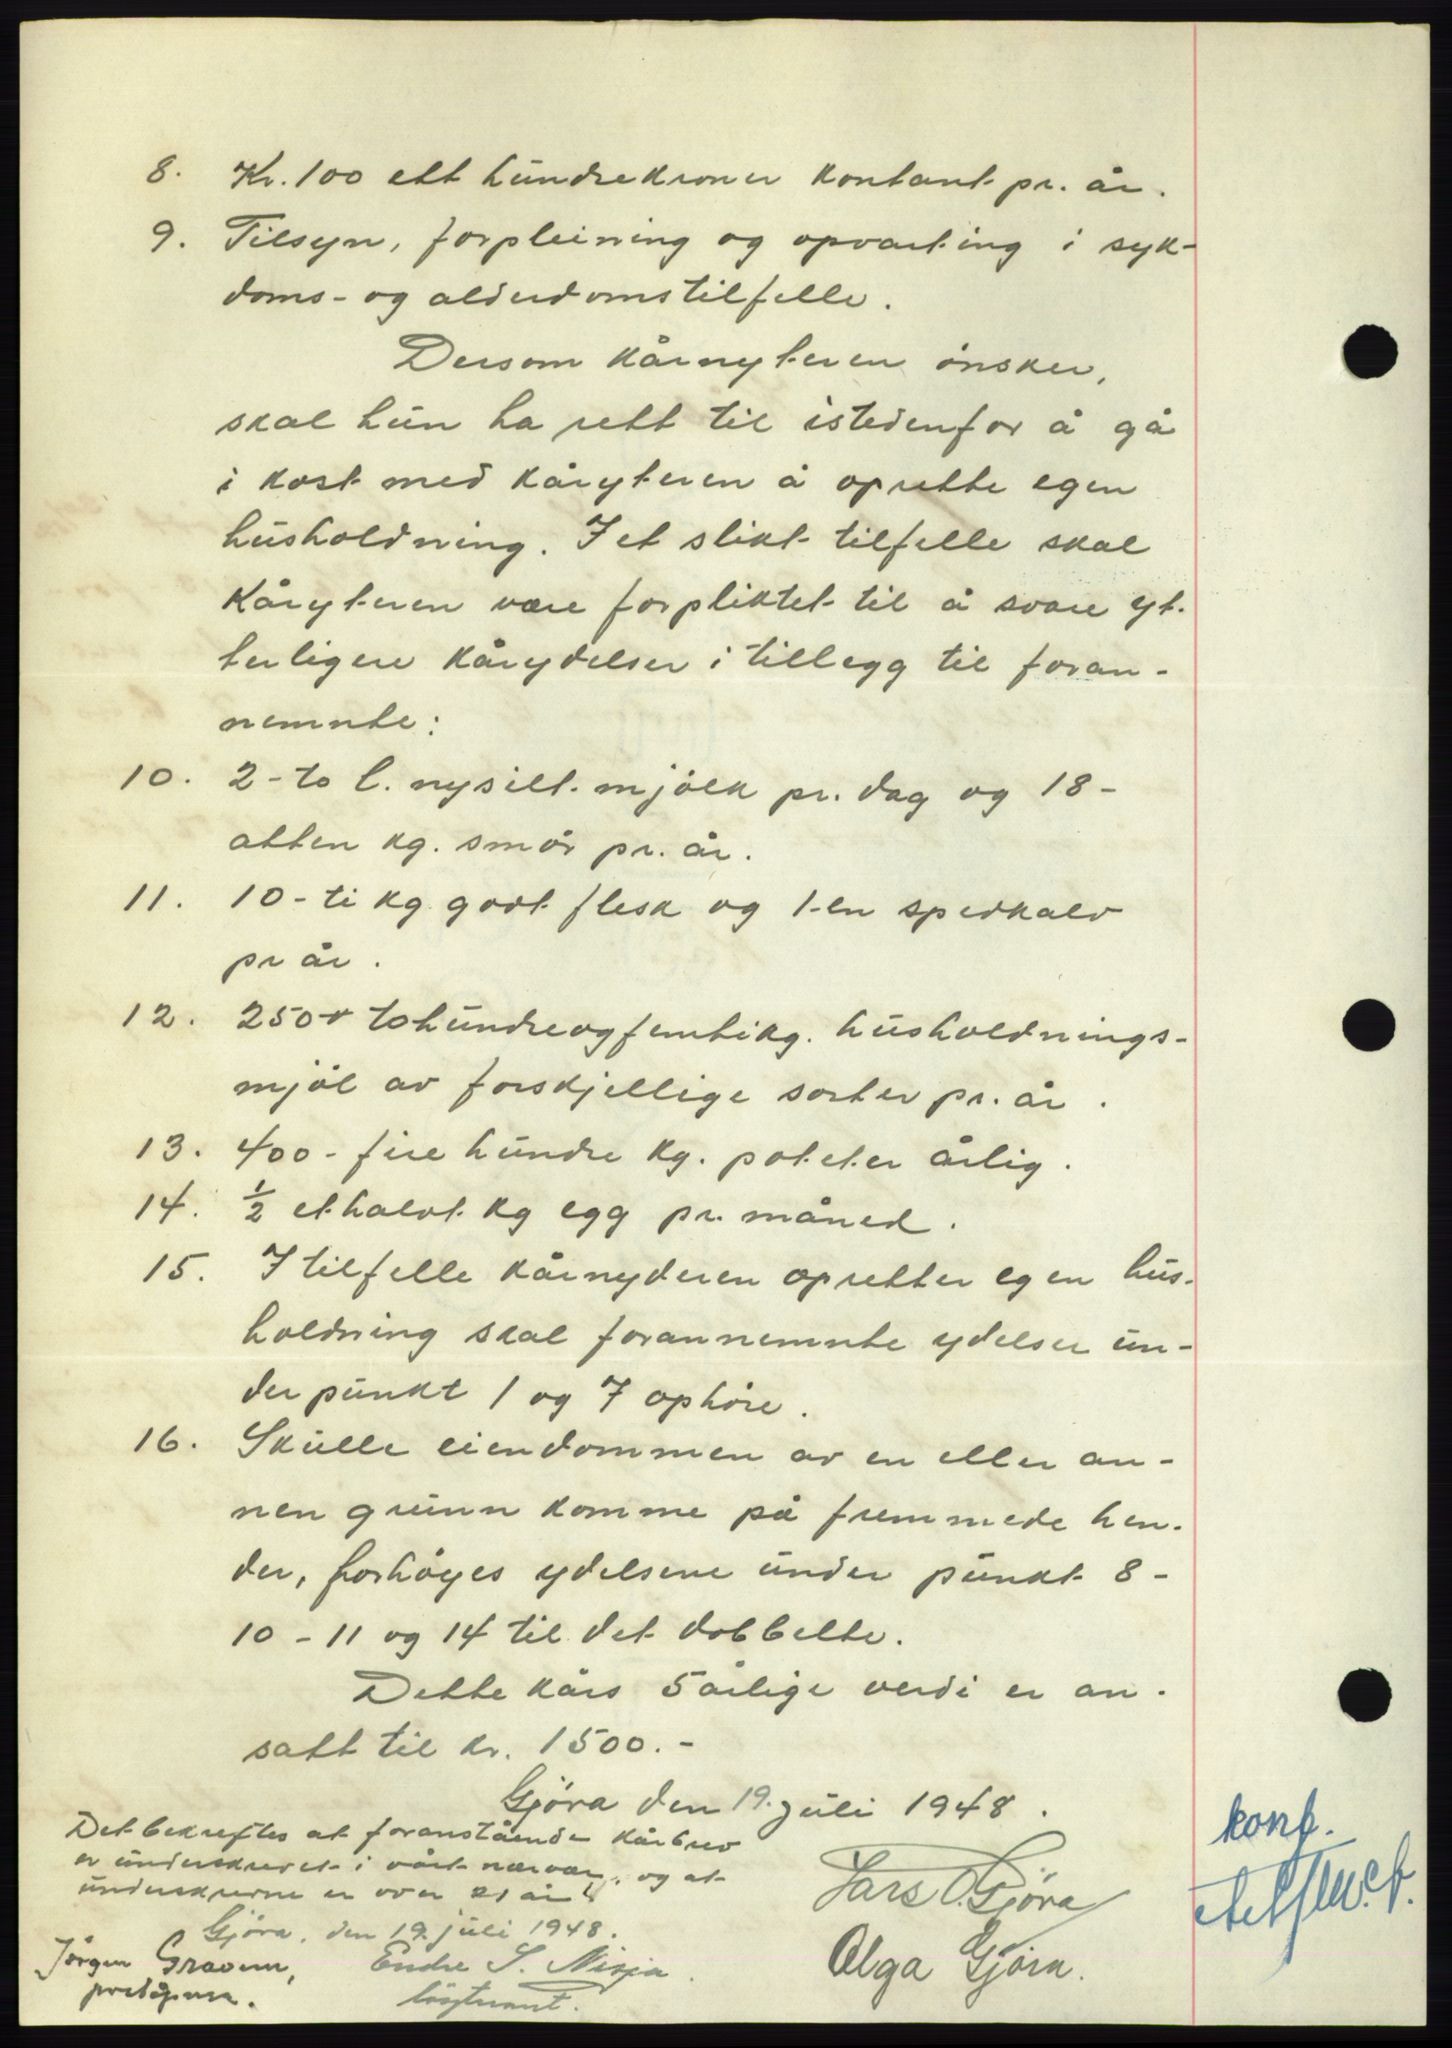 8. Kr. 100 ett hundrekroner kontant pr. år.
9. Tilsyn, forpleining og opvarting i syk-
doms- og alderdomstilfelle.
Dersom kårnyteren ønsker,
skal hun ha rett til istedenfor å gå
i kost med kåryteren å oprette egen
husholdning. I et slikt tilfelle skal
kåryteren være forpliktet til å svare yt-
terligere kårydelser i tillegg til foran-
nemnte:
10. 2-to l. nysilt mjølk pr. dag og 18-
atten kg. smør pr. år.
11. 10-ti kg godt flesk og 1-en spedkalv
pr år.
12. 250- tohundreogfemtikg. husholdnings-
mjøl av forskjellige sorter pr. år.
13. 400- fire hundre kg. poteter årlig.
14. ½ et halvt kg egg pr. måned.
15. I tilfelle kårnyderen opretter egen hus-
holdning skal forannemnte ydelser un-
der punkt 1 og 7 ophøre.
16. Skulle eiendommen av en eller an-
nen grunn komme på fremmede hen-
der, forhøyes ydelsene under punkt 8-
10-11 og 14 til det dobbelte.
Dette kårs 5 årlige verdi er an-
satt til kr. 1500.-
Gjøra den 19. juli 1948.
Det bekreftes at foranstående kårbrev
er underskrevet i vårt nærvær, og at
underskriverne er over 21 år
Gjøra, den 19. juli 1948.
Jørgen Gravem,
Endre S. Nisja.
Lars O. Gjøra
Olga Gjøra.
konf.